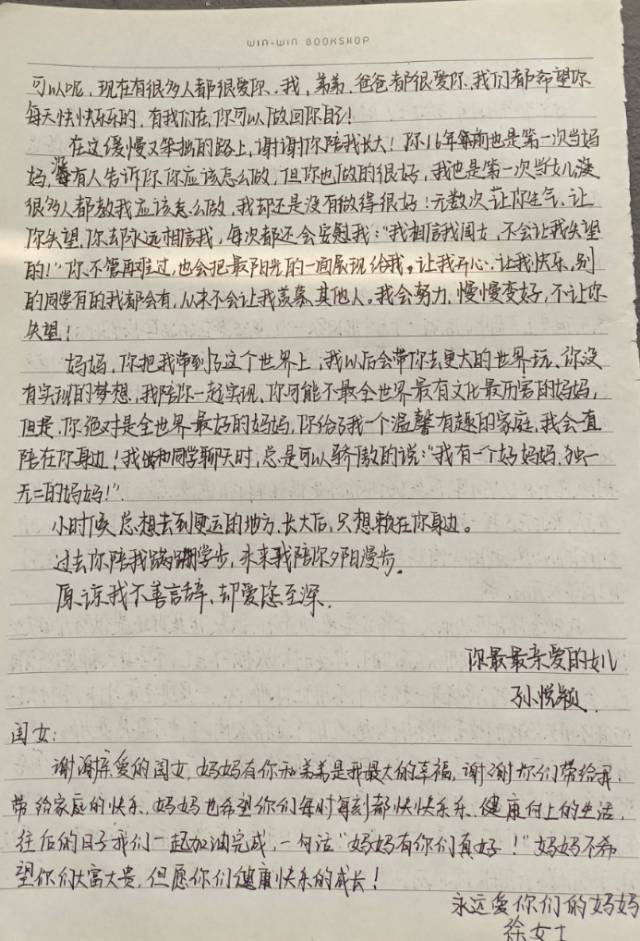 WIN-WIN BOOKSHOP
可以呢，现在有很多人都很爱你，我，弟弟，爸爸都很爱你，我们都希望你
每天快快乐乐的，有我们在，你可以做回你自己！
在这缓慢又笨拙的路上，谢谢你陪我长大！你16年前也是第一次当妈
妈，没有人告诉你你应该怎么做，但你也做的很好，我也是第一次当女儿，
很多人都教我应该怎么做，我却还是没有做得很好！无数次让你生气，让
你失望，你却永远相信我，每次都还会安慰我："我相信我闺女，不会让我失望
的！"你不管再难过，也会把最阳光的一面展现给我，让我开心，让我快乐，别
的同学有的我都会有，从来不会让我羡慕其他人。我会努力，慢慢变好，不让你
失望！
妈妈，你把我带到了这个世界上，我以后会带你去更大的世界玩，你没
有实现的梦想，我陪你一起实现，你可能不最全世界最有文化最厉害的妈妈，
但是，你绝对是全世界最好的妈妈，你给了我一个温馨有趣的家庭，我会一直
陪在你身边！我和同学聊天时，总是可以骄傲的说："我有一个好妈妈，独一
无二的妈妈！"
小时候总想去到更远的地方，长大后，只想赖在你身边。
过去你陪我蹒跚学步，未来我陪你夕阳漫步。
原谅我不善言辞，却爱您至深。
你最最亲爱的女儿
孙悦颖
闺女：
谢谢亲爱的闺女，妈妈有你和弟弟是我最大的幸福，谢谢你们带给我，
带给家庭的快乐，妈妈也希望你们每时每刻都快快乐乐、健康向上的生活，
往后的日子我们一起加油完成，一句话"妈妈有你们真好！"妈妈不希
望你们大富大贵，但愿你们健康快乐的成长！
永远爱你们的妈妈
徐女士